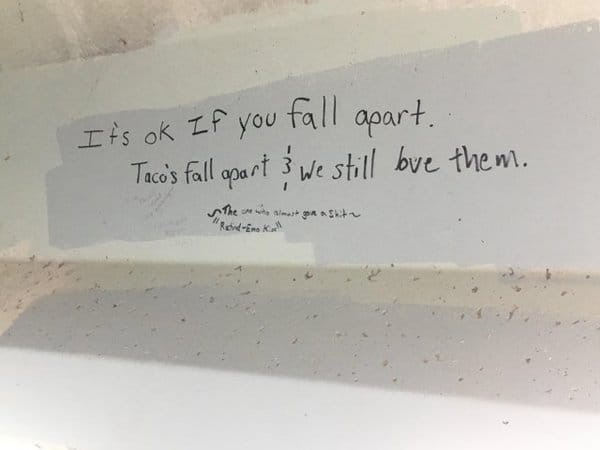 It's ok If you fall apart.
Taco's fall apart & we still love them.
~The one who almost gave a shit~